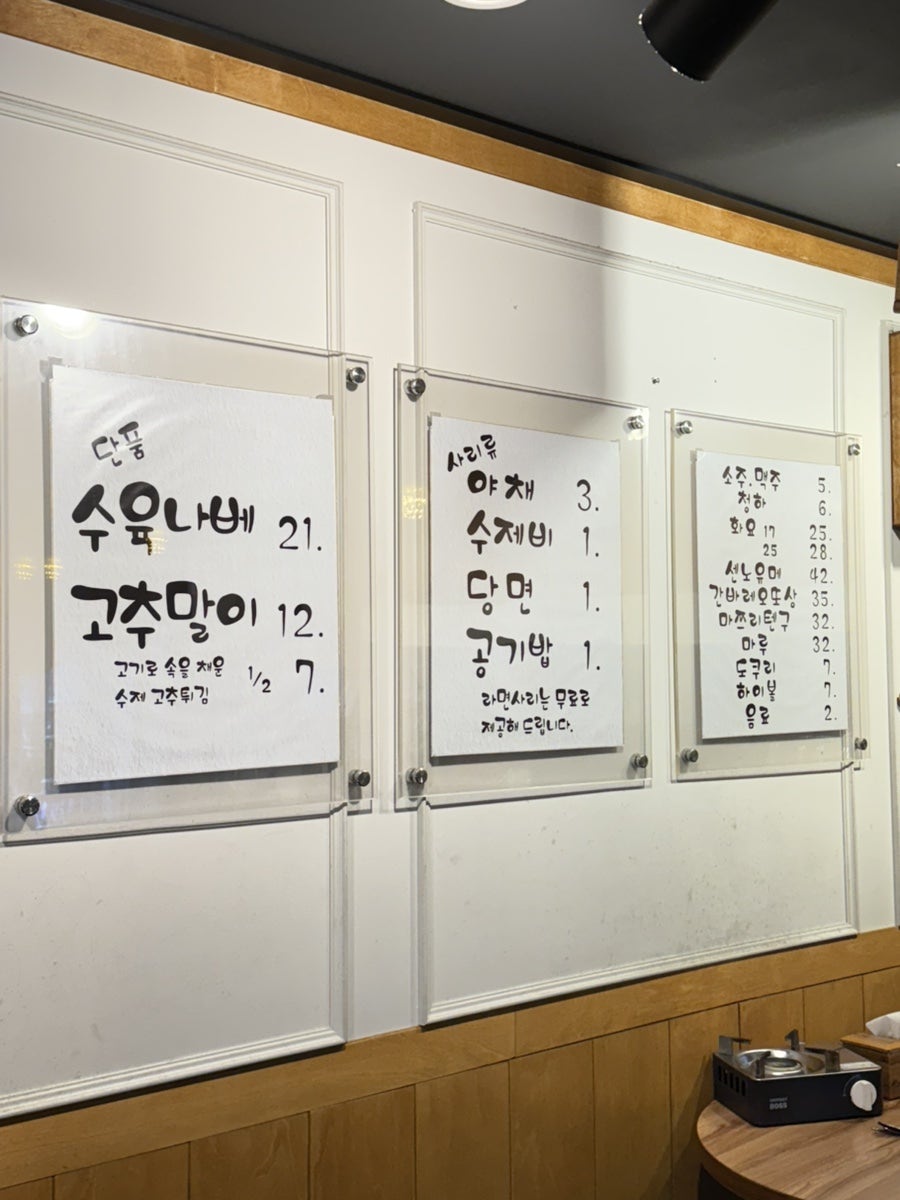 단품
수육나베 21.
고추말이 12.
고기로 속을 채운 1/2 7.
수제 고추튀김
사리류
야채 3.
수제비 1.
당면 1.
공기밥 1.
라면사리는 무료로
제공해 드립니다.
소주.맥주 5.
청하 6.
화요 17 25.
25 28.
센노유메 42.
간바레오또상 35.
마쯔리텐구 32.
마루 32.
도쿠리 7.
하이볼 7.
음료 2.